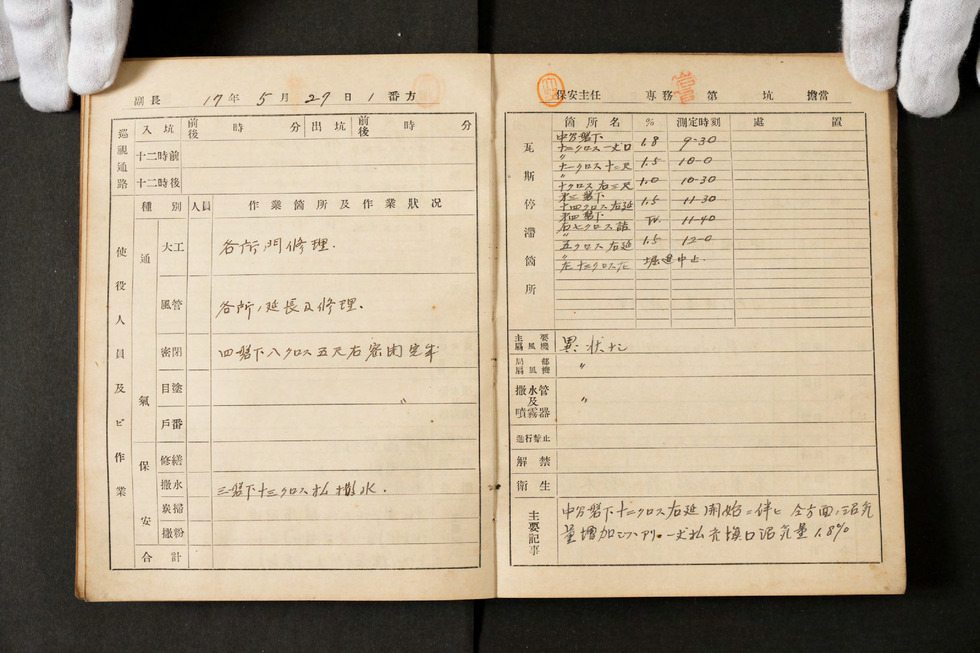 副長 17年 5月 27日 1番方
巡視通路 入坑 前後 時 分 出坑 前後 時 分
十二時前
十二時後
使役人員及ビ作業
種別 人員 作業箇所及作業狀況
通氣
大工 各所門修理.
風管 各所ノ延長及修理.
密閉 四盤下八クロス五尺右密閉完成
目塗 〃
戶番
保安
修繕
撒水 三盤下十三クロス払撒水.
炭掃
撒粉
合計
保安主任 專務 第 坑 擔當
瓦斯停滯箇所
箇所名 % 測定時刻 處置
中分盤下
十二クロス一丈口 1.8 9-30
〃
十一クロス十二尺 1.5 10-0
〃
十クロス右三尺 1.0 10-30
第三盤下
十四クロス右延 1.5 11-30
第四盤下
右七クロス詰 Tr. 11-40
〃
五クロス右延 1.5 12-0
〃
左十三クロス左 堀進中止.
主要扇風機 異狀ナシ
局部扇風機 〃
撒水管及噴霧器 〃
進行禁止
解禁
衛生
主要記事
中分盤下十二クロス右延開始ニ伴ヒ全方面ノ沼気
量増加シツヽアリ. 一丈払元坑口沼気量1.8%